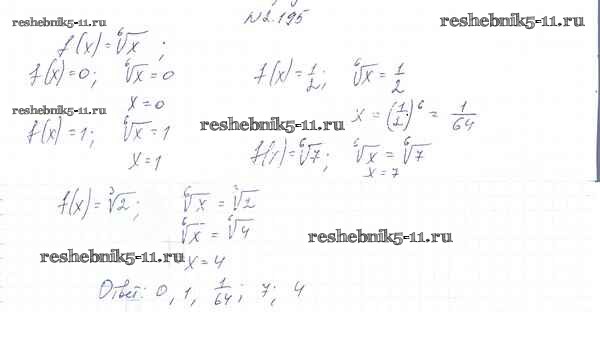 №2.195
reshebnik5-11.ru
f(x)=⁶√x ;
f(x)=0; ⁶√x = 0
x=0
f(x)=1/2; ⁶√x = 1/2
x = (1/2)⁶ = 1/64
reshebnik5-11.ru
f(x)=1; ⁶√x = 1
x=1
reshebnik5-11.ru
f(x)=⁶√7; ⁶√x = ⁶√7
x=7
f(x)=³√2; ⁶√x = ³√2
⁶√x = ⁶√4
x=4
reshebnik5-11.ru
reshebnik5-11.ru
Ответ: 0, 1, 1/64; 7; 4